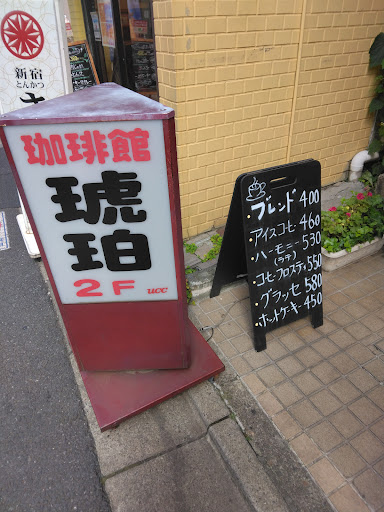 新宿
とんかつ
珈琲館
琥珀
2F ucc
・ブレンド 400
・アイスコーヒ 460
・ハーモニー 530
(ラテ)
・コーヒーフロスティ 550
・グラッセ 580
・ホットケーキ 450